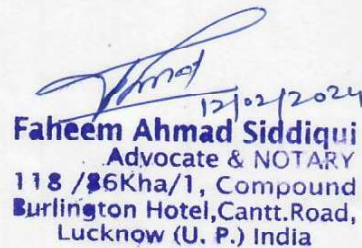 12/02/2024
Faheem Ahmad Siddiqui
Advocate & NOTARY
118 /86Kha/1, Compound
Burlington Hotel,Cantt.Road,
Lucknow (U. P.) India